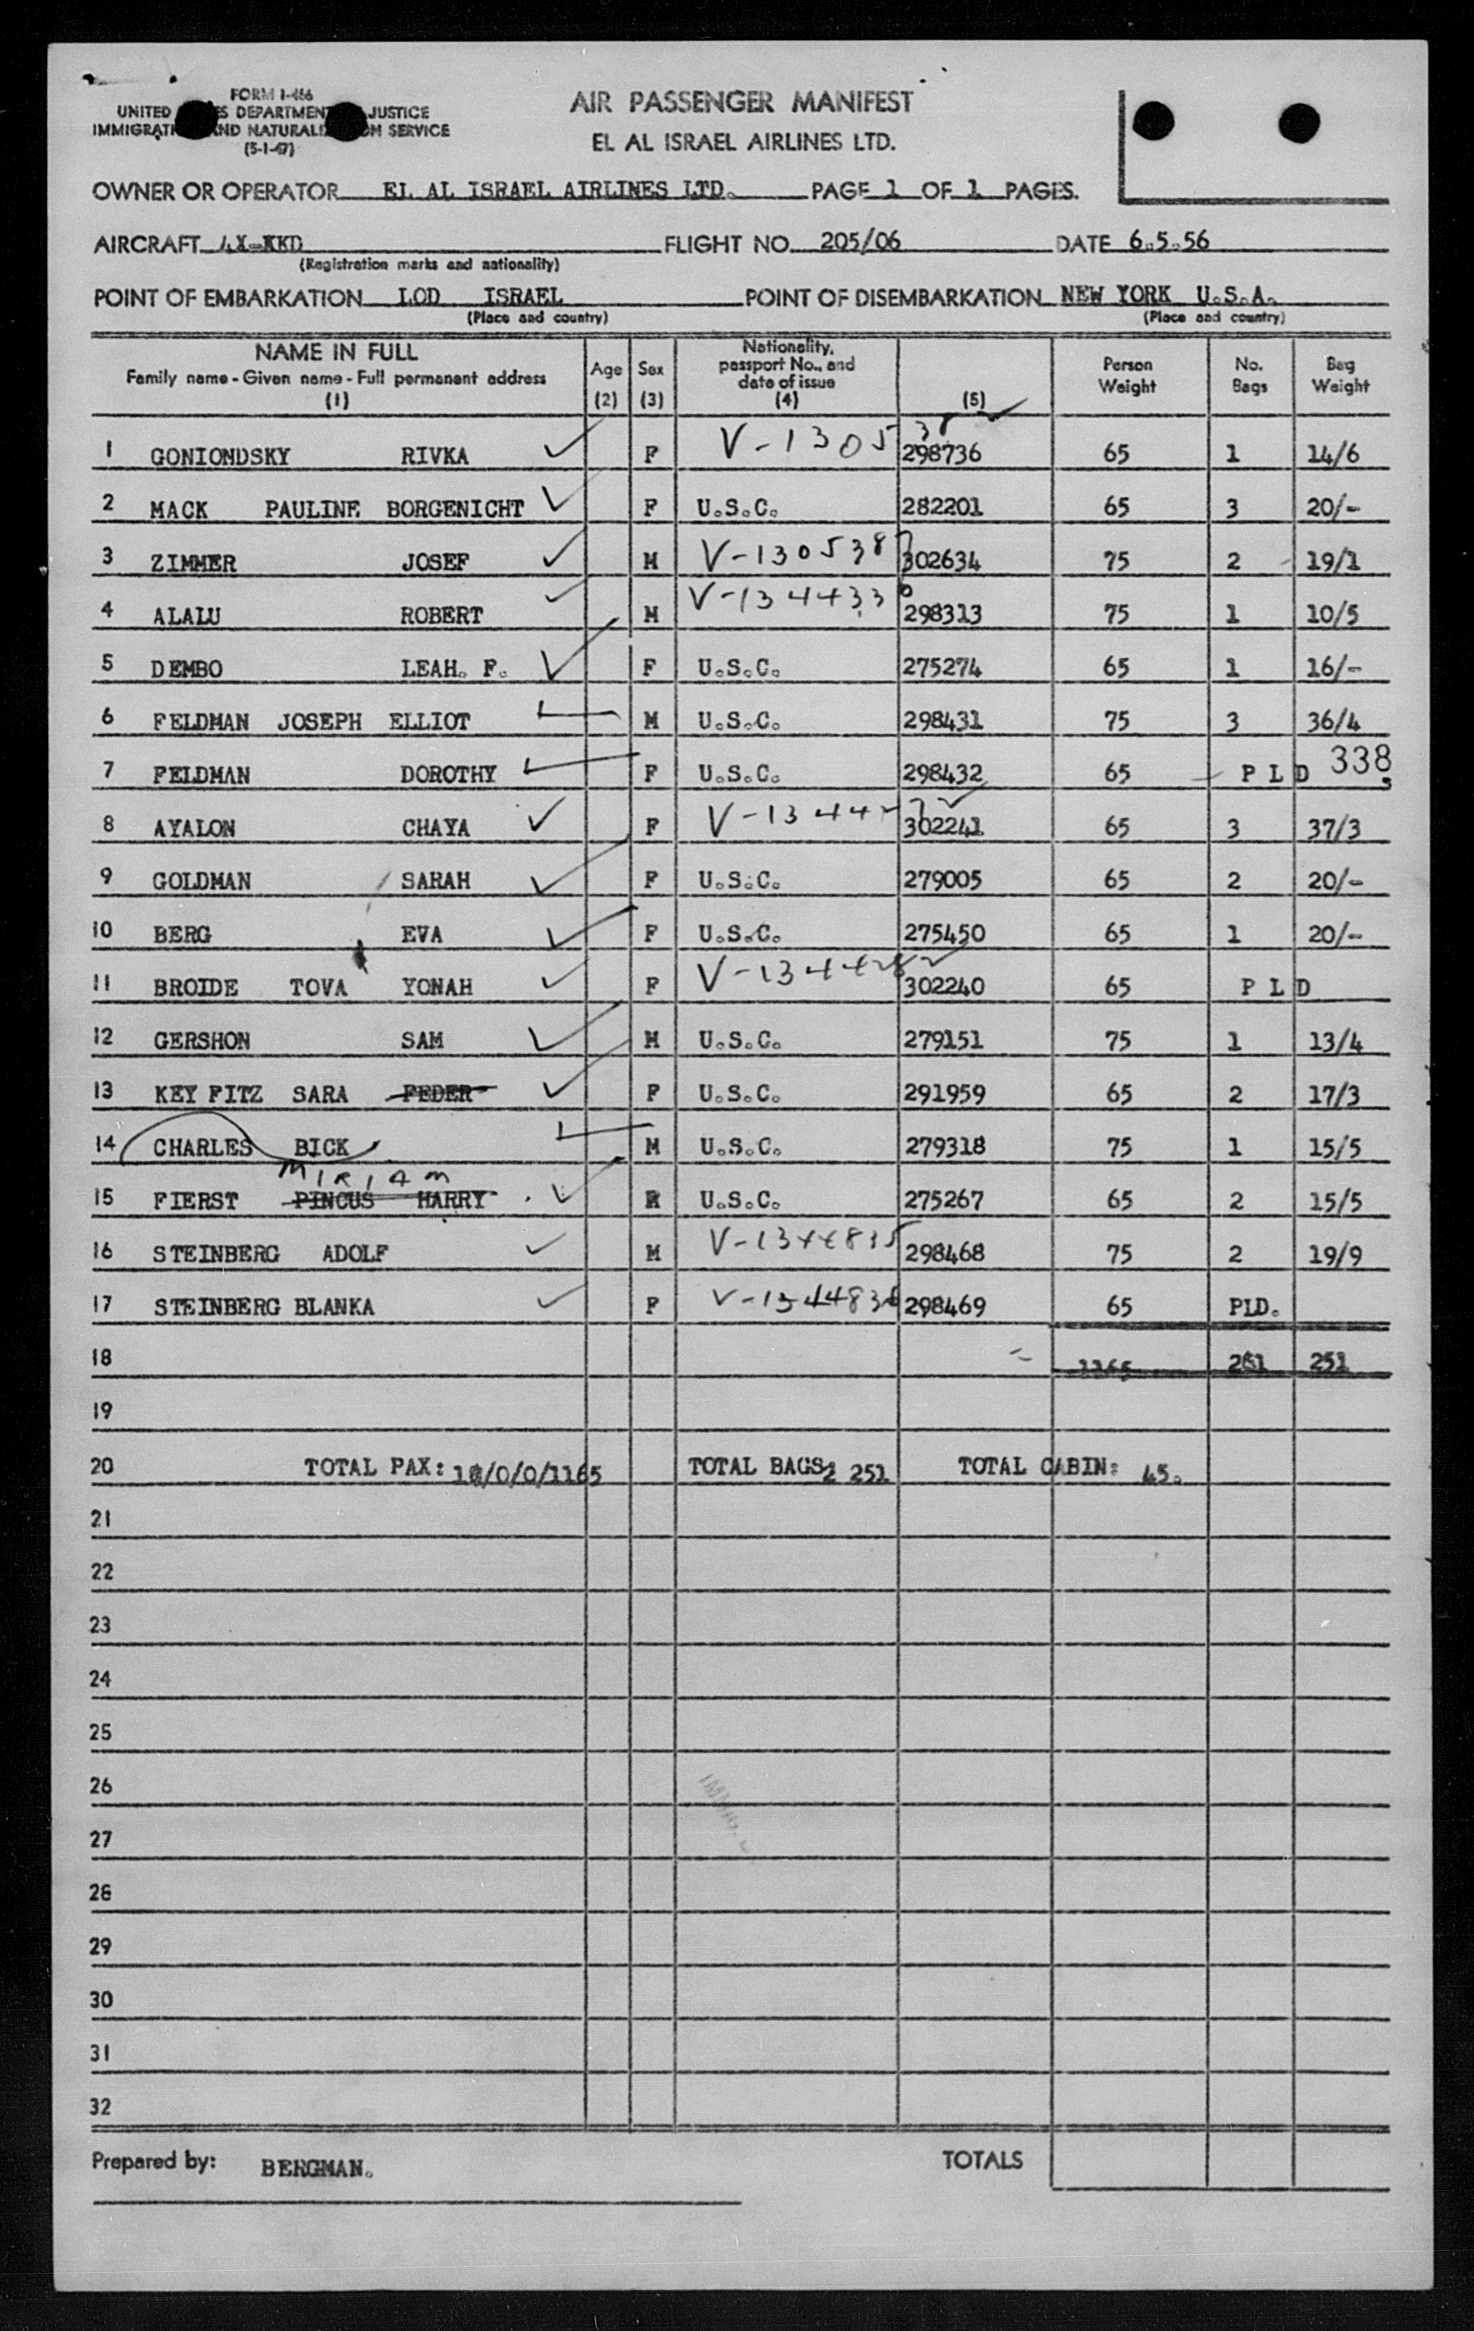 FORM I-466
UNITED STATES DEPARTMENT OF JUSTICE
IMMIGRATION AND NATURALIZATION SERVICE
(5-1-47)
AIR PASSENGER MANIFEST
EL AL ISRAEL AIRLINES LTD.
OWNER OR OPERATOR EL AL ISRAEL AIRLINES LTD. PAGE 1 OF 1 PAGES.
AIRCRAFT 4X-KKD FLIGHT NO. 205/06 DATE 6.5.56
(Registration marks and nationality)
POINT OF EMBARKATION LOD ISRAEL POINT OF DISEMBARKATION NEW YORK U.S.A.
(Place and country) (Place and country)
NAME IN FULL
Family name - Given name - Full permanent address
(1)
Age
(2)
Sex
(3)
Nationality,
passport No., and
date of issue
(4)
(5)
Person
Weight
No.
Bags
Bag
Weight
1 GONIONDSKY RIVKA F V-130538 298736 65 1 14/6
2 MACK PAULINE BORGENICHT F U.S.C. 282201 65 3 20/-
3 ZIMMER JOSEF M V-1305387 302634 75 2 19/1
4 ALALU ROBERT M V-1344330 298313 75 1 10/5
5 DEMBO LEAH. F. F U.S.C. 275274 65 1 16/-
6 FELDMAN JOSEPH ELLIOT M U.S.C. 298431 75 3 36/4
7 FELDMAN DOROTHY F U.S.C. 298432 65 P L D 338
8 AYALON CHAYA F 302241 65 3 37/3
9 GOLDMAN SARAH F U.S.C. 279005 65 2 20/-
10 BERG EVA F U.S.C. 275450 65 1 20/-
11 BROIDE TOVA YONAH F 302240 65 P L D
12 GERSHON SAM M U.S.C. 279151 75 1 13/4
13 KEY FITZ SARA FEDER F U.S.C. 291959 65 2 17/3
14 CHARLES BICK M U.S.C. 279318 75 1 15/5
MIRIAM
15 FIERST PINCUS HARRY U.S.C. 275267 65 2 15/5
16 STEINBERG ADOLF M V-1344835 298468 75 2 19/9
17 STEINBERG BLANKA F V-1344836 298469 65 PLD.
18 251
19
20 TOTAL PAX: /0/0/1165 TOTAL BAGS 251 TOTAL CABIN: 45.
21
22
23
24
25
26
27
28
29
30
31
32
Prepared by: BERGMAN. TOTALS